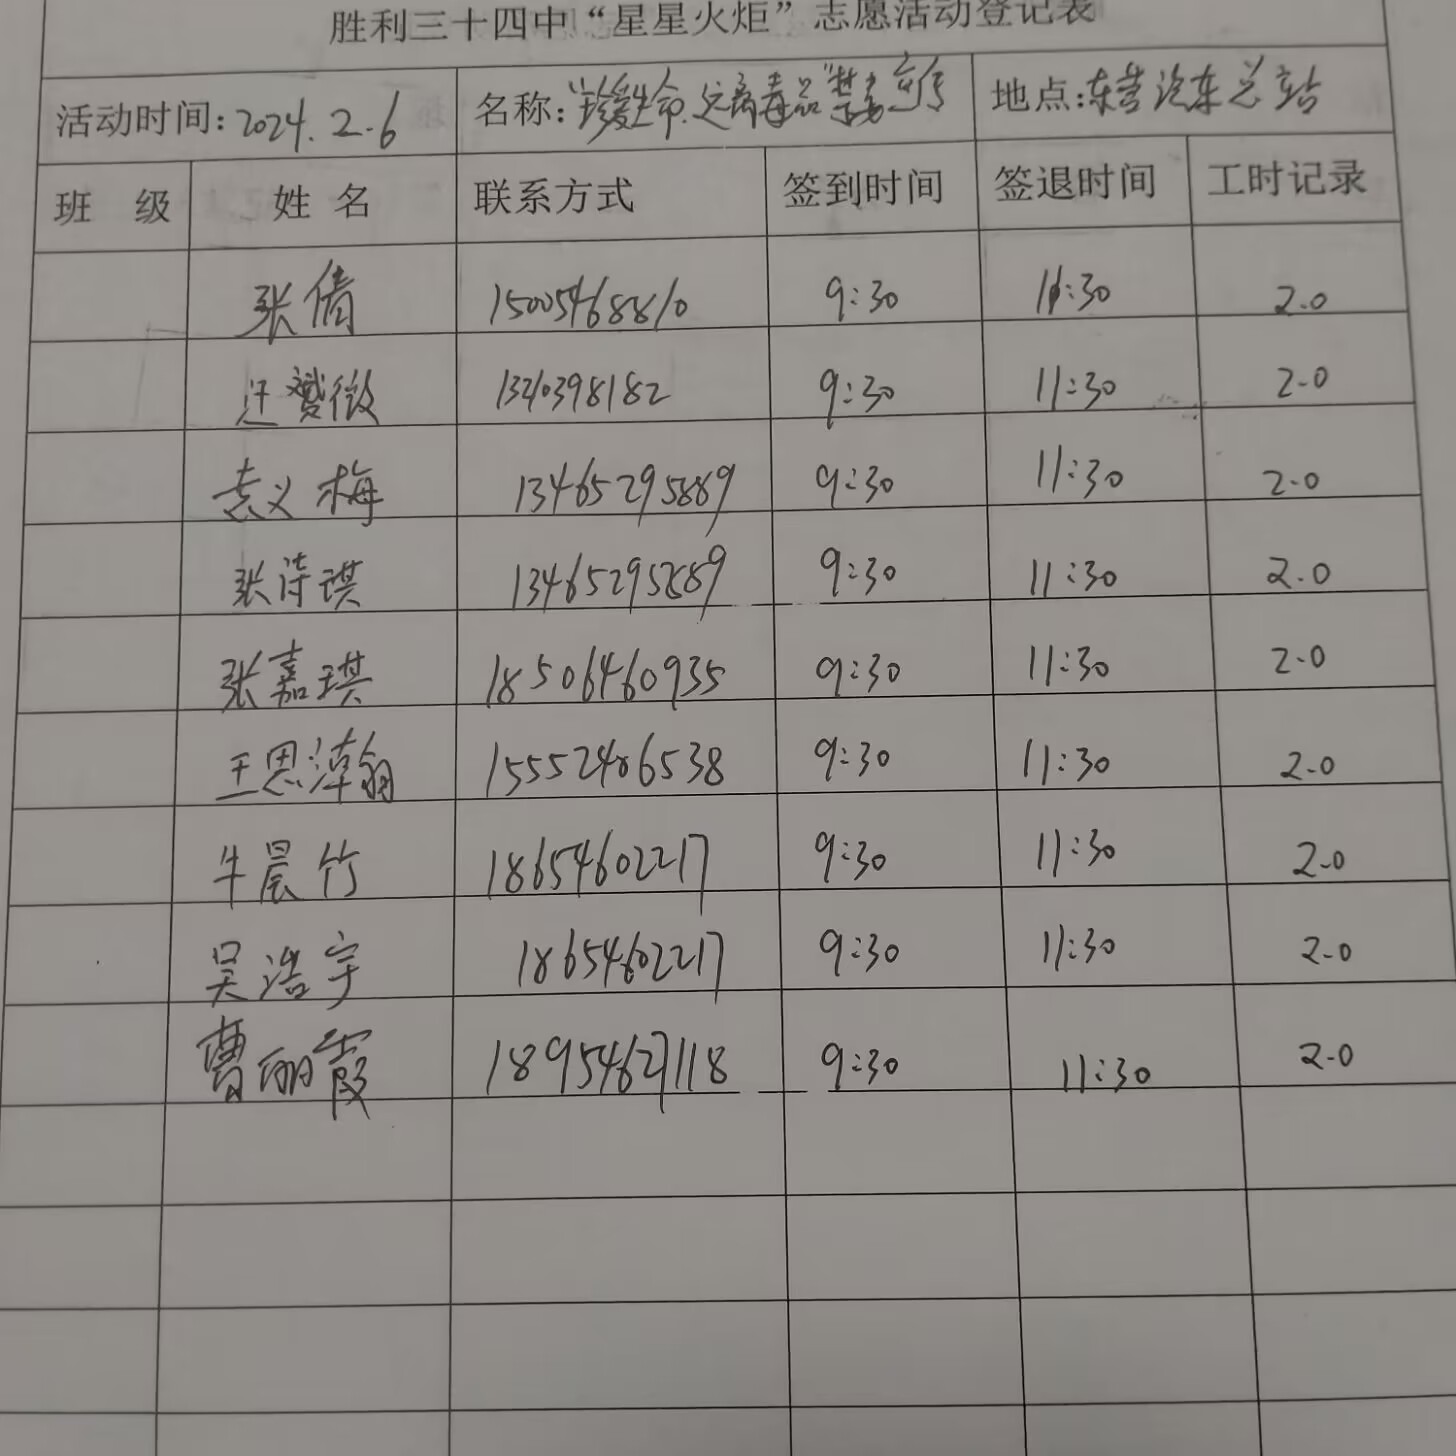 胜利三十四中“星星火炬”志愿活动登记表
活动时间:2024.2.6 名称:“珍爱生命.远离毒品”禁毒宣传 地点:东营汽车总站
班 级 姓 名 联系方式 签到时间 签退时间 工时记录
张倩 15005468810 9:30 11:30 2.0
13210398182 9:30 11:30 2.0
袁义梅 13465295889 9:30 11:30 2.0
张诗琪 13465295889 9:30 11:30 2.0
张嘉琪 18506460935 9:30 11:30 2.0
王思淖翰 15552486538 9:30 11:30 2.0
牛晨竹 18654602217 9:30 11:30 2.0
吴浩宇 18654602217 9:30 11:30 2.0
曹丽霞 18954627118 9:30 11:30 2.0